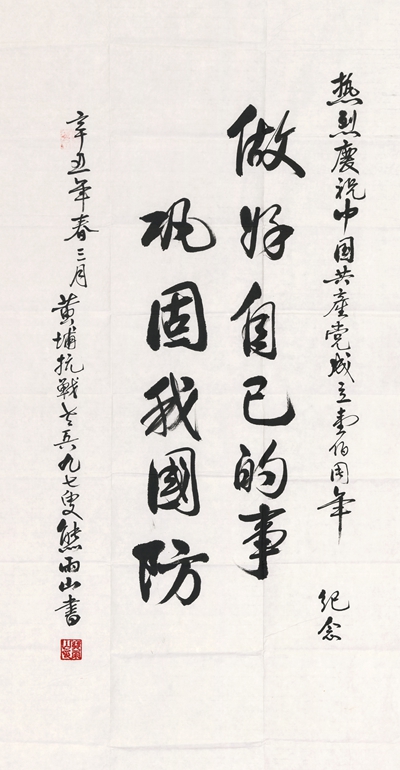 热烈慶祝中国共產党成立壹佰周年
纪念
做好自己的事
巩固我國防
辛丑年春三月 黄埔抗戰老兵九七叟熊雨山書